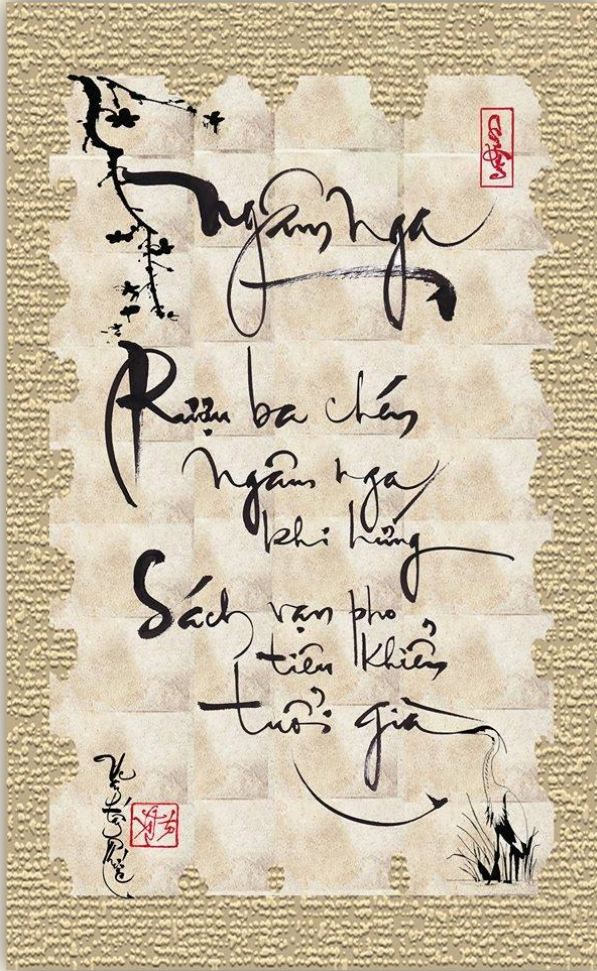 Ngâm nga
Rượu ba chén
ngâm nga
khi hứng
Sách vạn pho
tiêu khiển
tuổi già